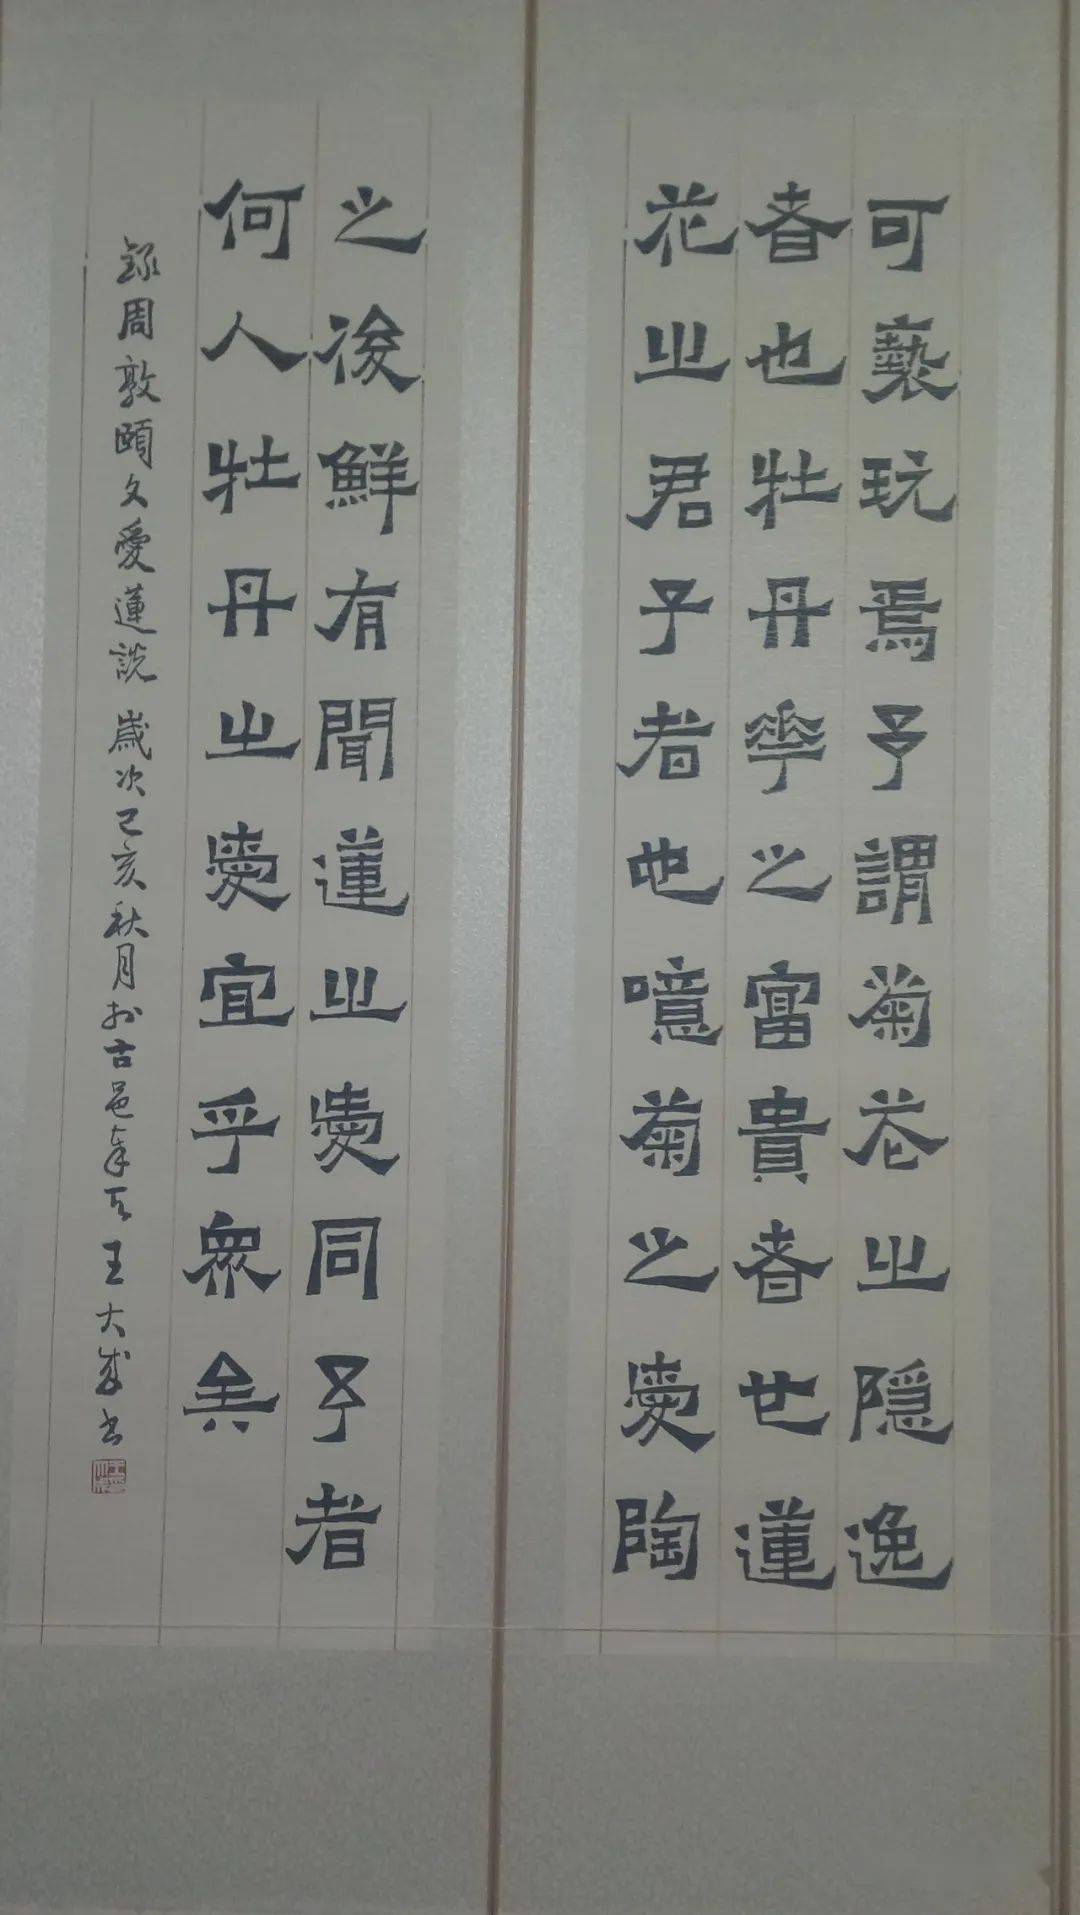 可褻玩焉予謂菊花之隱逸
者也牡丹華之富貴者也蓮
花之君子者也噫菊之愛陶
之後鮮有聞蓮之愛同予者
何人牡丹之愛宜乎眾矣
錄周敦頤文愛蓮說 歲次己亥秋月於古邑奉天王大成書